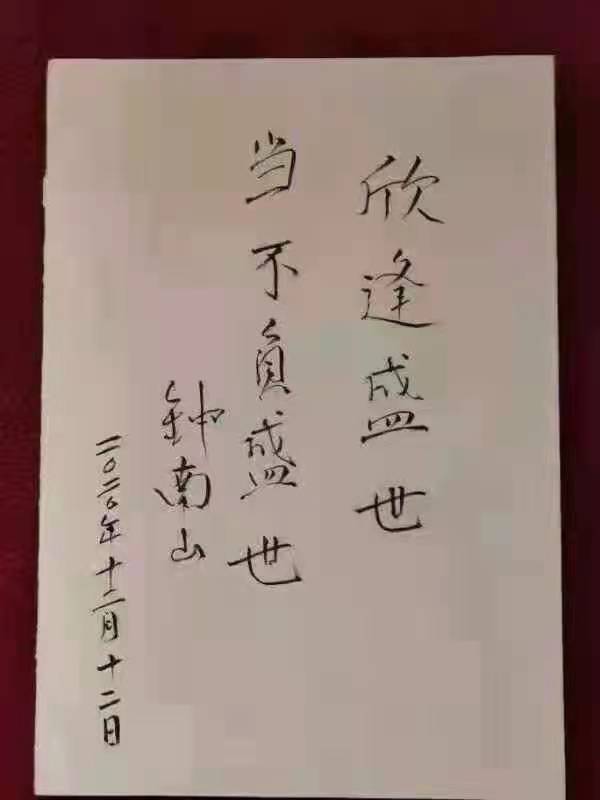 欣逢盛世
当不負盛世
鈡南山
二〇二〇年十二月十二日